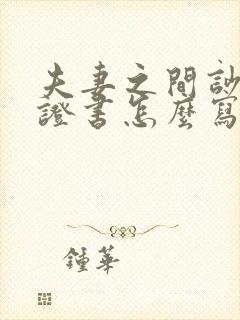 夫妻之間訟
證書怎麼寫
鍾華